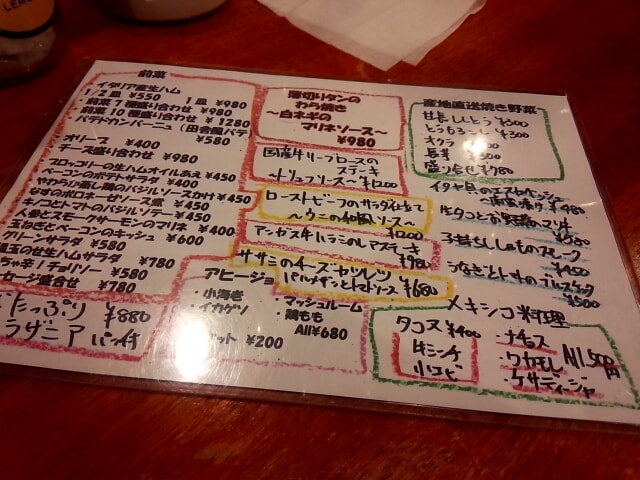 LEMO
前菜
・イタリア産生ハム
1/2皿 ¥550 1皿 ¥980
・前菜7種盛り合わせ ¥980
・前菜10種盛り合わせ ¥1280
・パテドカンパーニュ(田舎風パテ)
¥580
オリーブ ¥400
チーズ盛り合わせ ¥980
ブロッコリーの生ハムオイルあえ ¥450
ベーコンのポテトサラダ ¥400
やわらか蒸し鶏のバジルソースがけ ¥450
なすのボロネーゼソース ¥450
キノコとトマトのバジルソテー ¥450
人参とスモークサーモンのマリネ ¥400
玉ねぎとベーコンのキッシュ ¥600
グリーンサラダ ¥580
温玉のせ生ハムサラダ ¥780
チョリソー ¥580
セージ盛合せ ¥780
たっぷり ¥880
ラザニア パン付
薄切りタンの
わら焼き
〜白ネギの
マリネソース〜
¥980
国産牛リーブロースの
ステーキ
〜トリュフソース〜 ¥1200
ローストビーフのサラダ仕立て
〜ウニの和風ソース〜
¥1200
アンガス牛ハラミのレアステーキ
¥980
ササミのチーズカツレツ
パルメザンとトマトソース ¥680
アヒージョ
・小海老 ・マッシュルーム
・イカゲソ ・鶏もも
All¥680
ット ¥200
産地直送焼き野菜
甘長ししとう ¥300
とうもろこし ¥300
オクラ
長芋 ¥300
盛り合せ ¥780
¥580
子持ちししゃものスモーク
¥450
¥500
メキシコ料理
タコス ¥400
牛ミンチ
小エビ
・ナチョス
・ワカモレ
・ケサディージャ
All 500円